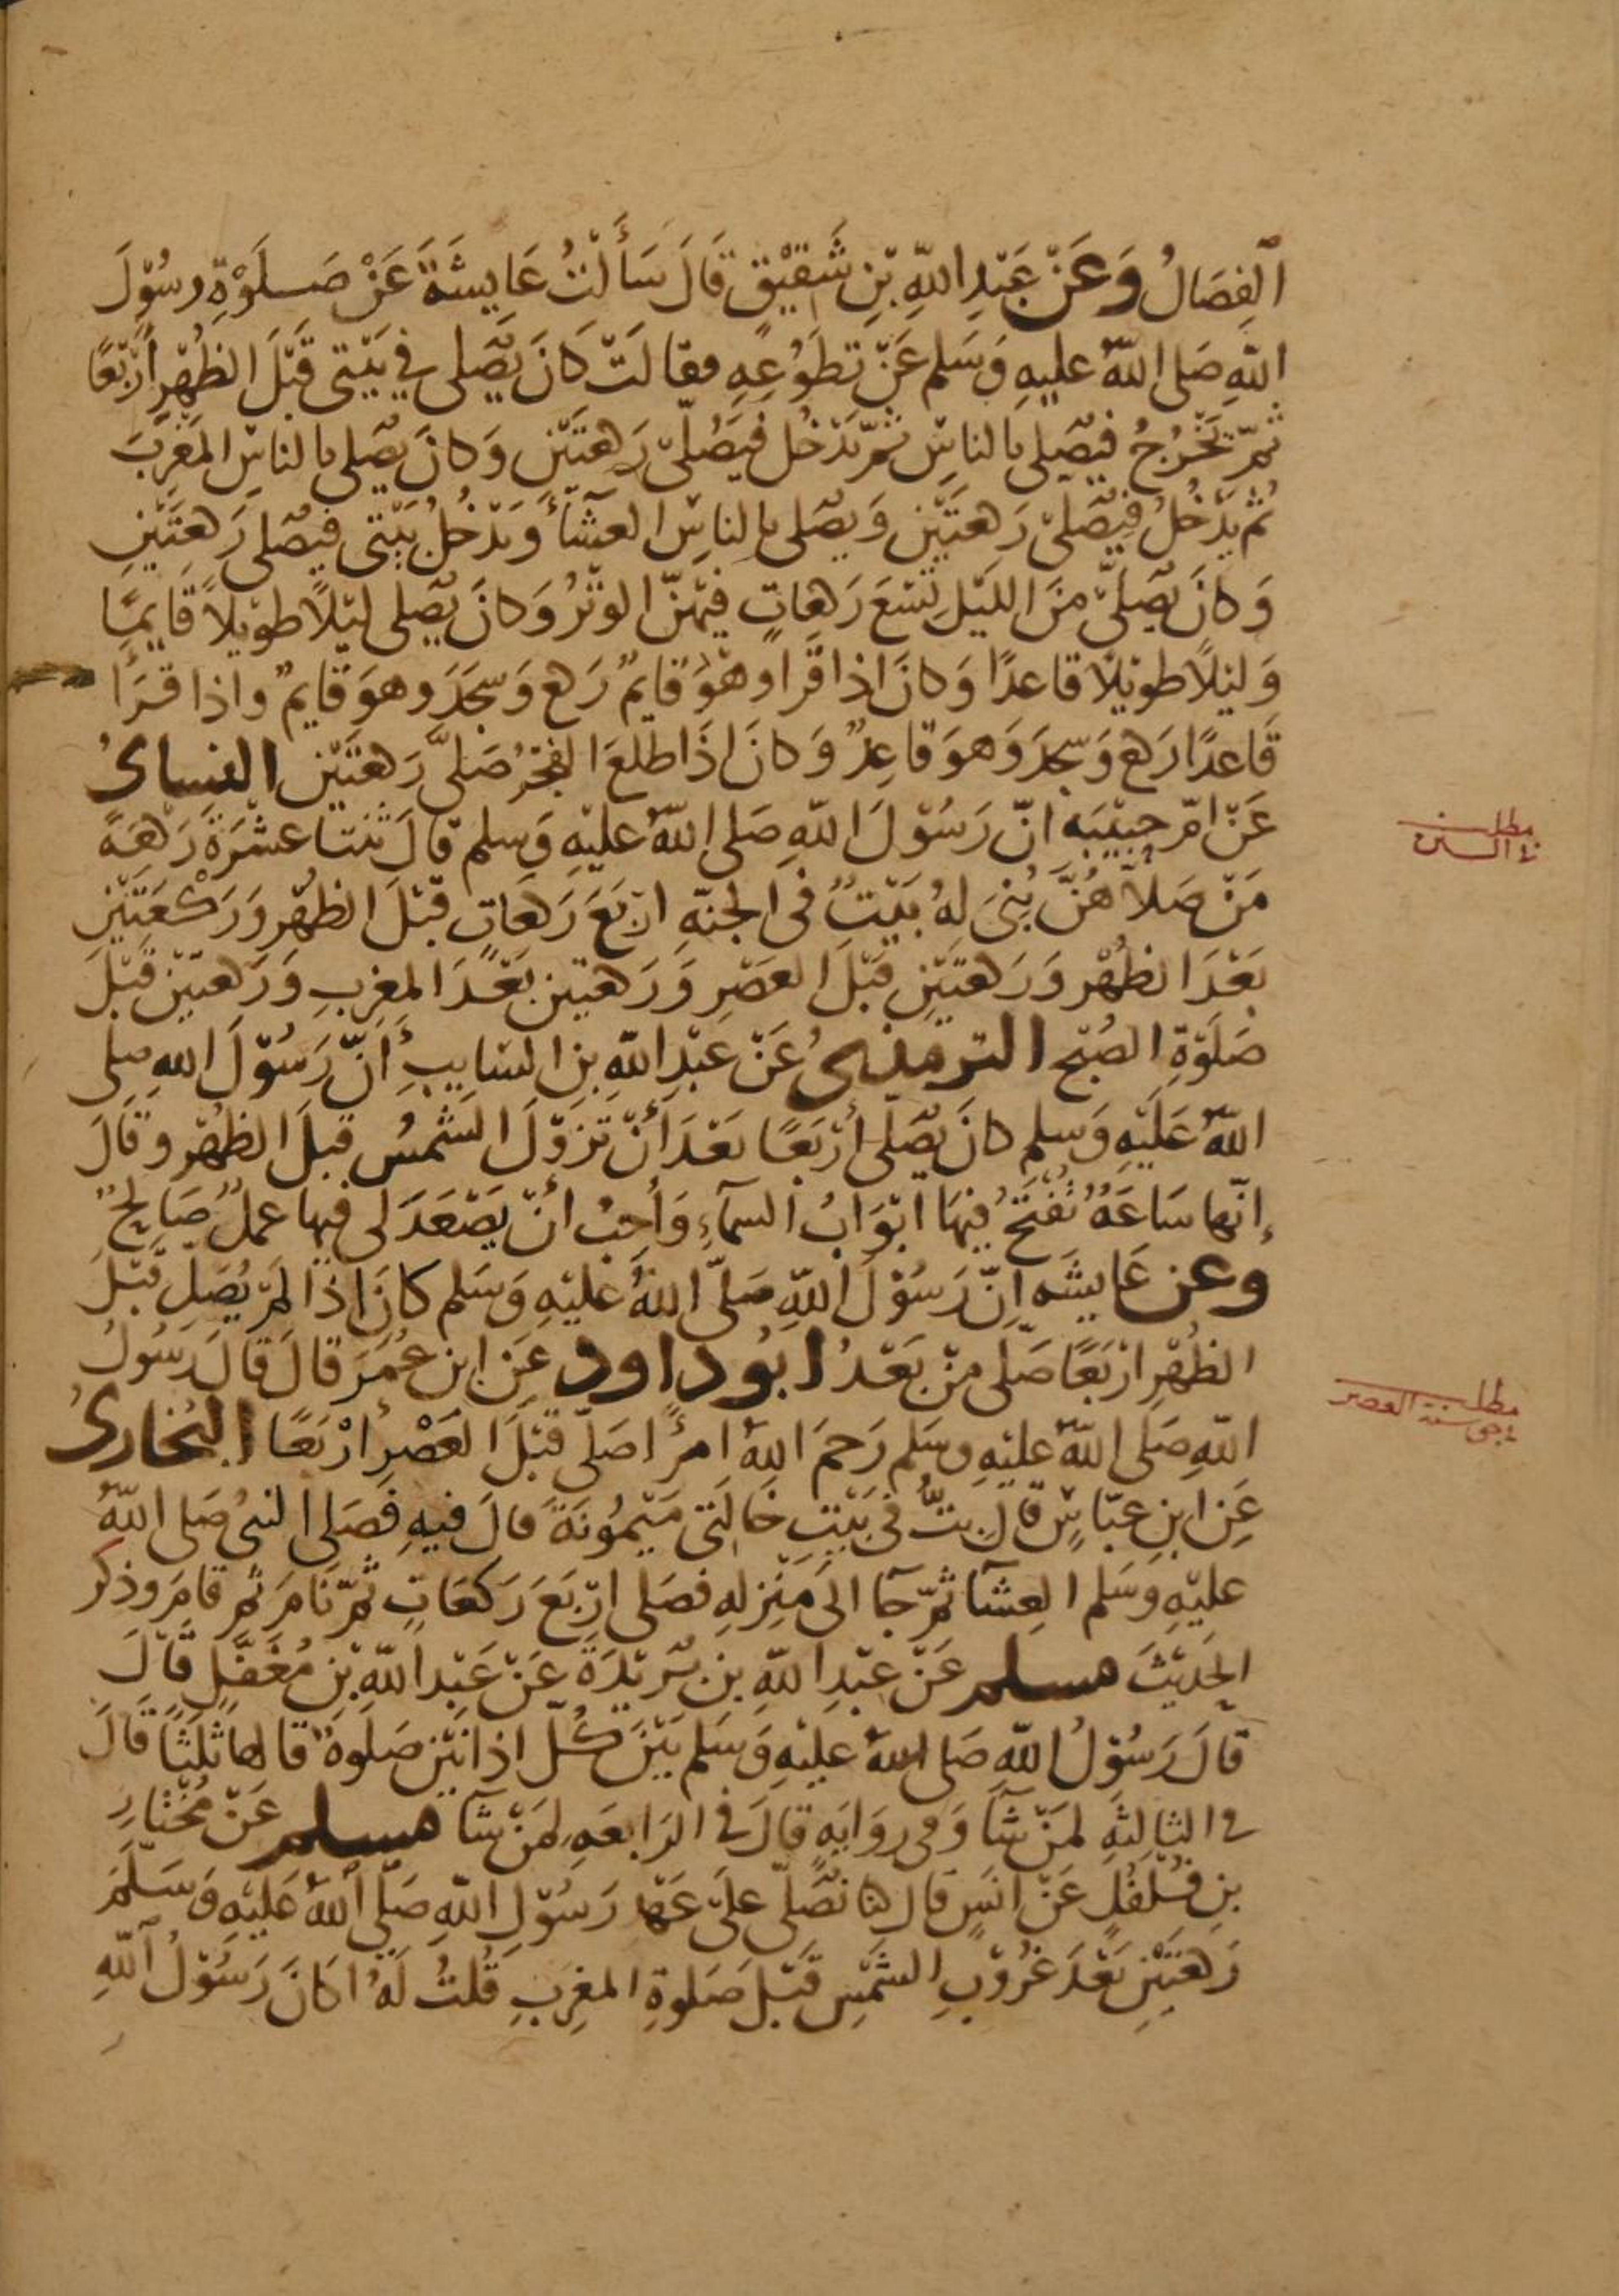 الفِصَالُ وَعَنْ عَبْدِ اللّهِ بْنِ شَقِيْقٍ قَالَ سَأَلْتُ عَايِشَةَ عَنْ صَلَوٰةِ رسُوْلَ
اللّهِ صَلى اللّهُ عليهِ وَسَلم عَنْ تطَوُعِهِ فقالَتْ كَانَ يُصَلى فى بَيْتى قَبْلَ الظُهْرِ أَرْبَعًا
ثُمّ يَخْرُجُ فيُصَلى بالناسِ ثمّ يَدْخُل فيُصَلىّ رَكعَتَيْن وَكانَ يصَلى بالناسِ المَغربَ
ثم يَدْخُلُ فيُصَلىّ رَكعَتَيْنِ وَيصَلى بالناسِ العشآءَ وَيَدْخُلُ بَيْتى فيصَلى رَكعَتَيْنِ
وَكانَ يُصَلىّ منَ الليْل تِسْعَ رَكعاتٍ فيْهنّ الوتْرُ وَكانَ يُصَلى ليْلًا طوِيْلاً قَايمًا
وَليْلًا طويْلًا قاعدًا وَكانَ اذا قَرا وهْوَ قايمٌ رَكع وَسجَدَ وهوَ قايمٌ واذا قرَأ
قَاعدًا رَكع وَسجدَ وَهوَ قاعِدٌ وَكانَ اذَا طلعَ الفجْرُ صَلىَّ رَكعَتَيْنِ النسائُ
عَنْ امّ حبِيْبَه انّ رَسُوْلَ اللّهِ صَلى اللّهُ عليْهِ وَسلم قالَ ثنتا عشْرَةَ رَكعَةً
مَنْ صَلاّهُنَّ بُنىَ لهُ بَيْتٌ فى الجنّهِ ارْبَعَ رَكعَاتٍ قبْلَ الظهْرِ وَرَكْعَتَيْنِ
بَعْدَ الظهْر وَرَكعَتَيْنِ قبْلَ العصْرِ وَرَكعَتين بَعْدَ المغربِ وَرَكعتيْن قَبْلَ
صَلَوٰةِ الصُبْح الترمذىُ عَنْ عَبْدِ اللّهِ بنِ السَايبِ أَنّ رَسُوْلَ اللهِ صلى
اللّهُ عَلَيْهِ وَسلم كانَ يُصَلى أرْبَعًا بَعْدَ أَنْ تزوْلَ الشمسُ قبلَ الظهْرِ وقالَ
إنّها سَاعَةٌ تُفتَحُ فيْهَا ابْوَابُ السمآءِ وَأحبُ انْ يَصْعَدَ لى فيها عملٌ صَالحٌ
وعن عَايشَه انّ رَسُوْلَ اللّهِ صَلىّ اللهُ عليْهِ وَسَلم كانَ اذا لمْ يُصَلِ قَبْلَ
الظُهْرِ ارْبَعًا صَلّى منْ بَعْدُ ابُو داود عَنِ ابن عُمَرَ قالَ قالَ رَسُولُ
اللّهِ صَلى اللّهُ عليْهِ وسَلم رَحمَ اللهُ امرًأ صَلىّ قَبْلَ العَصْرِ ارْبَعًا البُخارىُ
عَنِ ابنِ عبّاسٍ قالَ بتُّ فى بَيْتِ خَالَتى مَيْمُونَةَ قالَ فيهِ فَصَلى النبىُ صَلى اللّهُ
عليْهِ وَسَلم العِشآ ثمّ جآ الىَ مَنْزلهِ فصَلى ارْبَعَ رَكعَاتٍ ثمّ نَامَ ثم قامَ وذكرَ
الحَديْثَ مسلم عَنْ عبْدِ اللّهِ بن بُرَيْدَةَ عَنْ عَبْد اللّهِ بْنِ مُغَفّلٍ قالَ
قالَ رَسُوْلُ اللّهِ صَلى اللّهُ عليْهِ وَسَلم بَيْنَ كُلّ اذانيْنِ صَلوةٌ قالها ثلٰثًا قالَ
فى الثالثَهِ لمَنْ شآَ وَفى روَايَهٍ قالَ فى الرَابعَهِ لمَنْ شآ مسلم عَنْ مُخْتارِ
بنِ فُلفُلٍ عَنْ انَسٍ قالَ كنا نُصَلّى علىَ عَهْدِ رَسُوْلِ اللّهِ صَلّى اللّهُ عَلَيْهِ وَسَلَّمَ
رَكعَتَيْنِ بَعْدَ غُرُوْبِ الشَمْسِ قَبْلَ صَلوةِ المغِربِ قُلتُ لَهُ اكَانَ رَسُوْلُ اللّهِ
مطلب
فى السنن
مطلب
سنة العصر